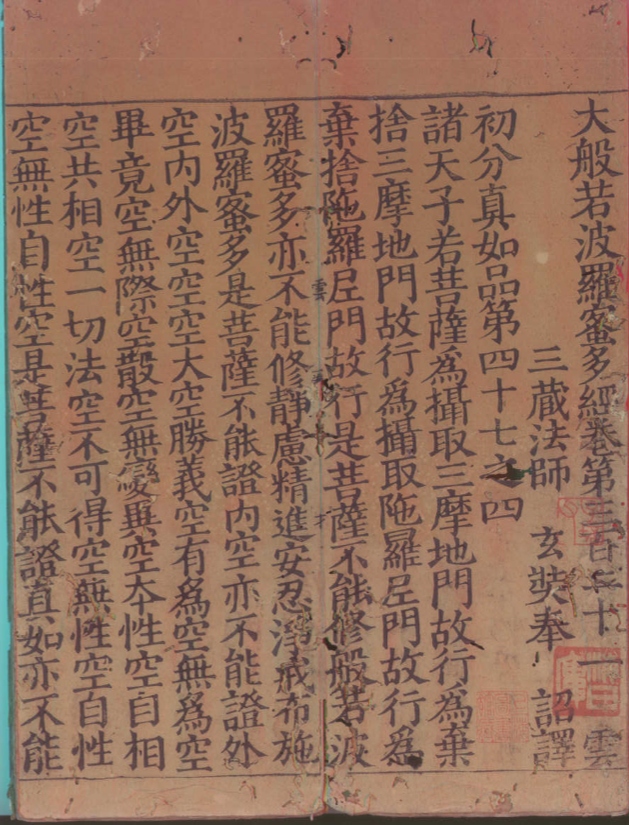 大般若波羅蜜多經卷第三百二十一 雲
三藏法師 玄奘奉 詔譯
初分真如品第四十七之四
諸天子若菩薩為攝取三摩地門故行為棄
捨三摩地門故行為攝取陁羅尼門故行為
棄捨陁羅尼門故行是菩薩不能修般若波
羅蜜多亦不能修靜慮精進安忍淨戒布施
波羅蜜多是菩薩不能證內空亦不能證外
空內外空空空大空勝義空有為空無為空
畢竟空無際空散空無變異空本性空自相
空共相空一切法空不可得空無性空自性
空無性自性空是菩薩不能證真如亦不能
雲